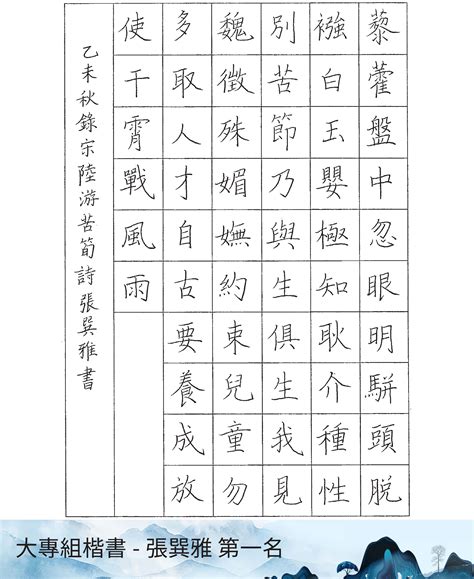 藜藿盤中忽眼明駢頭脫
襁白玉嬰極知耿介種性
別苦節乃與生俱生我見
魏徵殊媚嫵約束兒童勿
多取人才自古要養成放
使干霄戰風雨
乙未秋錄宋陸游苦筍詩張巽雅書
大專組楷書 - 張巽雅 第一名